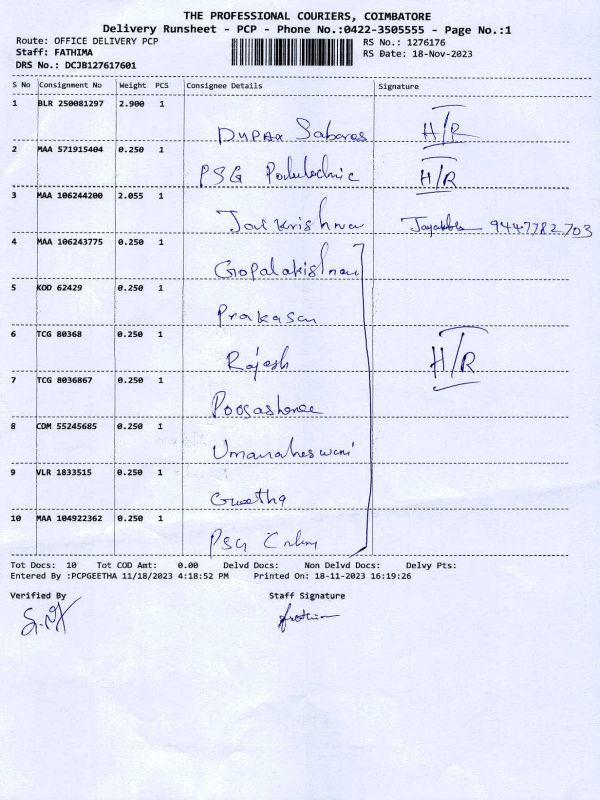 THE PROFESSIONAL COURIERS, COIMBATORE
Delivery Runsheet - PCP - Phone No.:0422-3505555 - Page No.:1
Route: OFFICE DELIVERY PCP
Staff: FATHIMA
DRS No.: DCJB127617601
RS No.: 1276176
RS Date: 18-Nov-2023
S No Consignment No Weight PCS Consignee Details Signature
1 BLR 250081297 2.900 1
H/R
2 MAA 571915404 0.250 1
PSG H/R
3 MAA 106244200 2.055 1
Jai Krishna 9447782703
4 MAA 106243775 0.250 1
Gopalakishnan
5 KOD 62429 0.250 1
Prakasan
6 TCG 80368 0.250 1
Rajesh H/R
7 TCG 8036867 0.250 1
8 CDM 55245685 0.250 1
9 VLR 1833515 0.250 1
Geetha
10 MAA 104922362 0.250 1
PSG
Tot Docs: 10 Tot COD Amt: 0.00 Delvd Docs: Non Delvd Docs: Delvy Pts:
Entered By :PCPGEETHA 11/18/2023 4:18:52 PM Printed On: 18-11-2023 16:19:26
Verified By Staff Signature